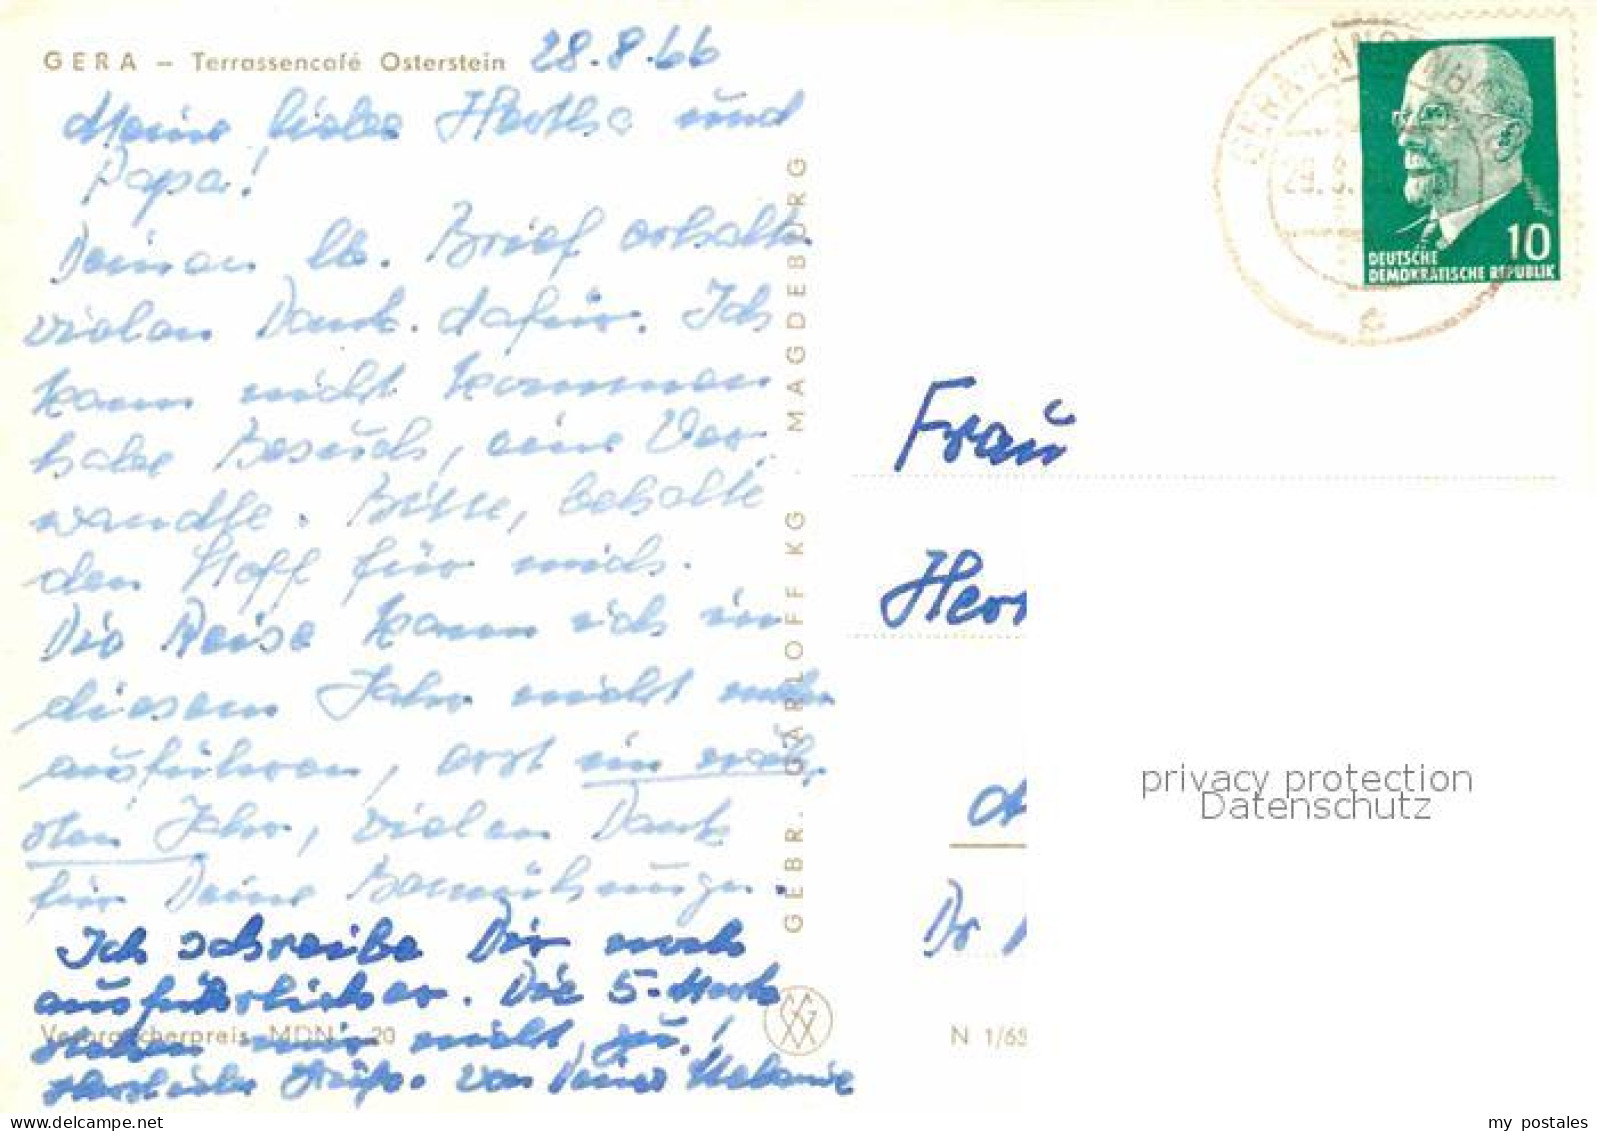 GERA – Terrassencafé Osterstein 28.8.66
Meine liebe Hertha und
Papa!
Deinen lb. Brief erhalten
vielen Dank dafür. Ich
kann nicht kommen
habe Besuch, eine Ver-
wandte. Bitte, behalte
den Stoff für mich.
Die Reise kann ich in
diesem Jahr nicht mehr
ausführen, erst im näch-
sten Jahr, vielen Dank
für Deine Bemühungen.
Ich schreibe Dir noch
ausführlicher. Die 5.- Mark
stehen mir nicht zu!
Herzliche Grüße von Deiner Melanie
Verbraucherpreis MDN -,20
GEBR. GARLOFF KG · MAGDEBURG
N 1/65
DEUTSCHE
DEMOKRATISCHE REPUBLIK
10
GERA
29.8.
Frau
Her
Dr
privacy protection
Datenschutz
my postales